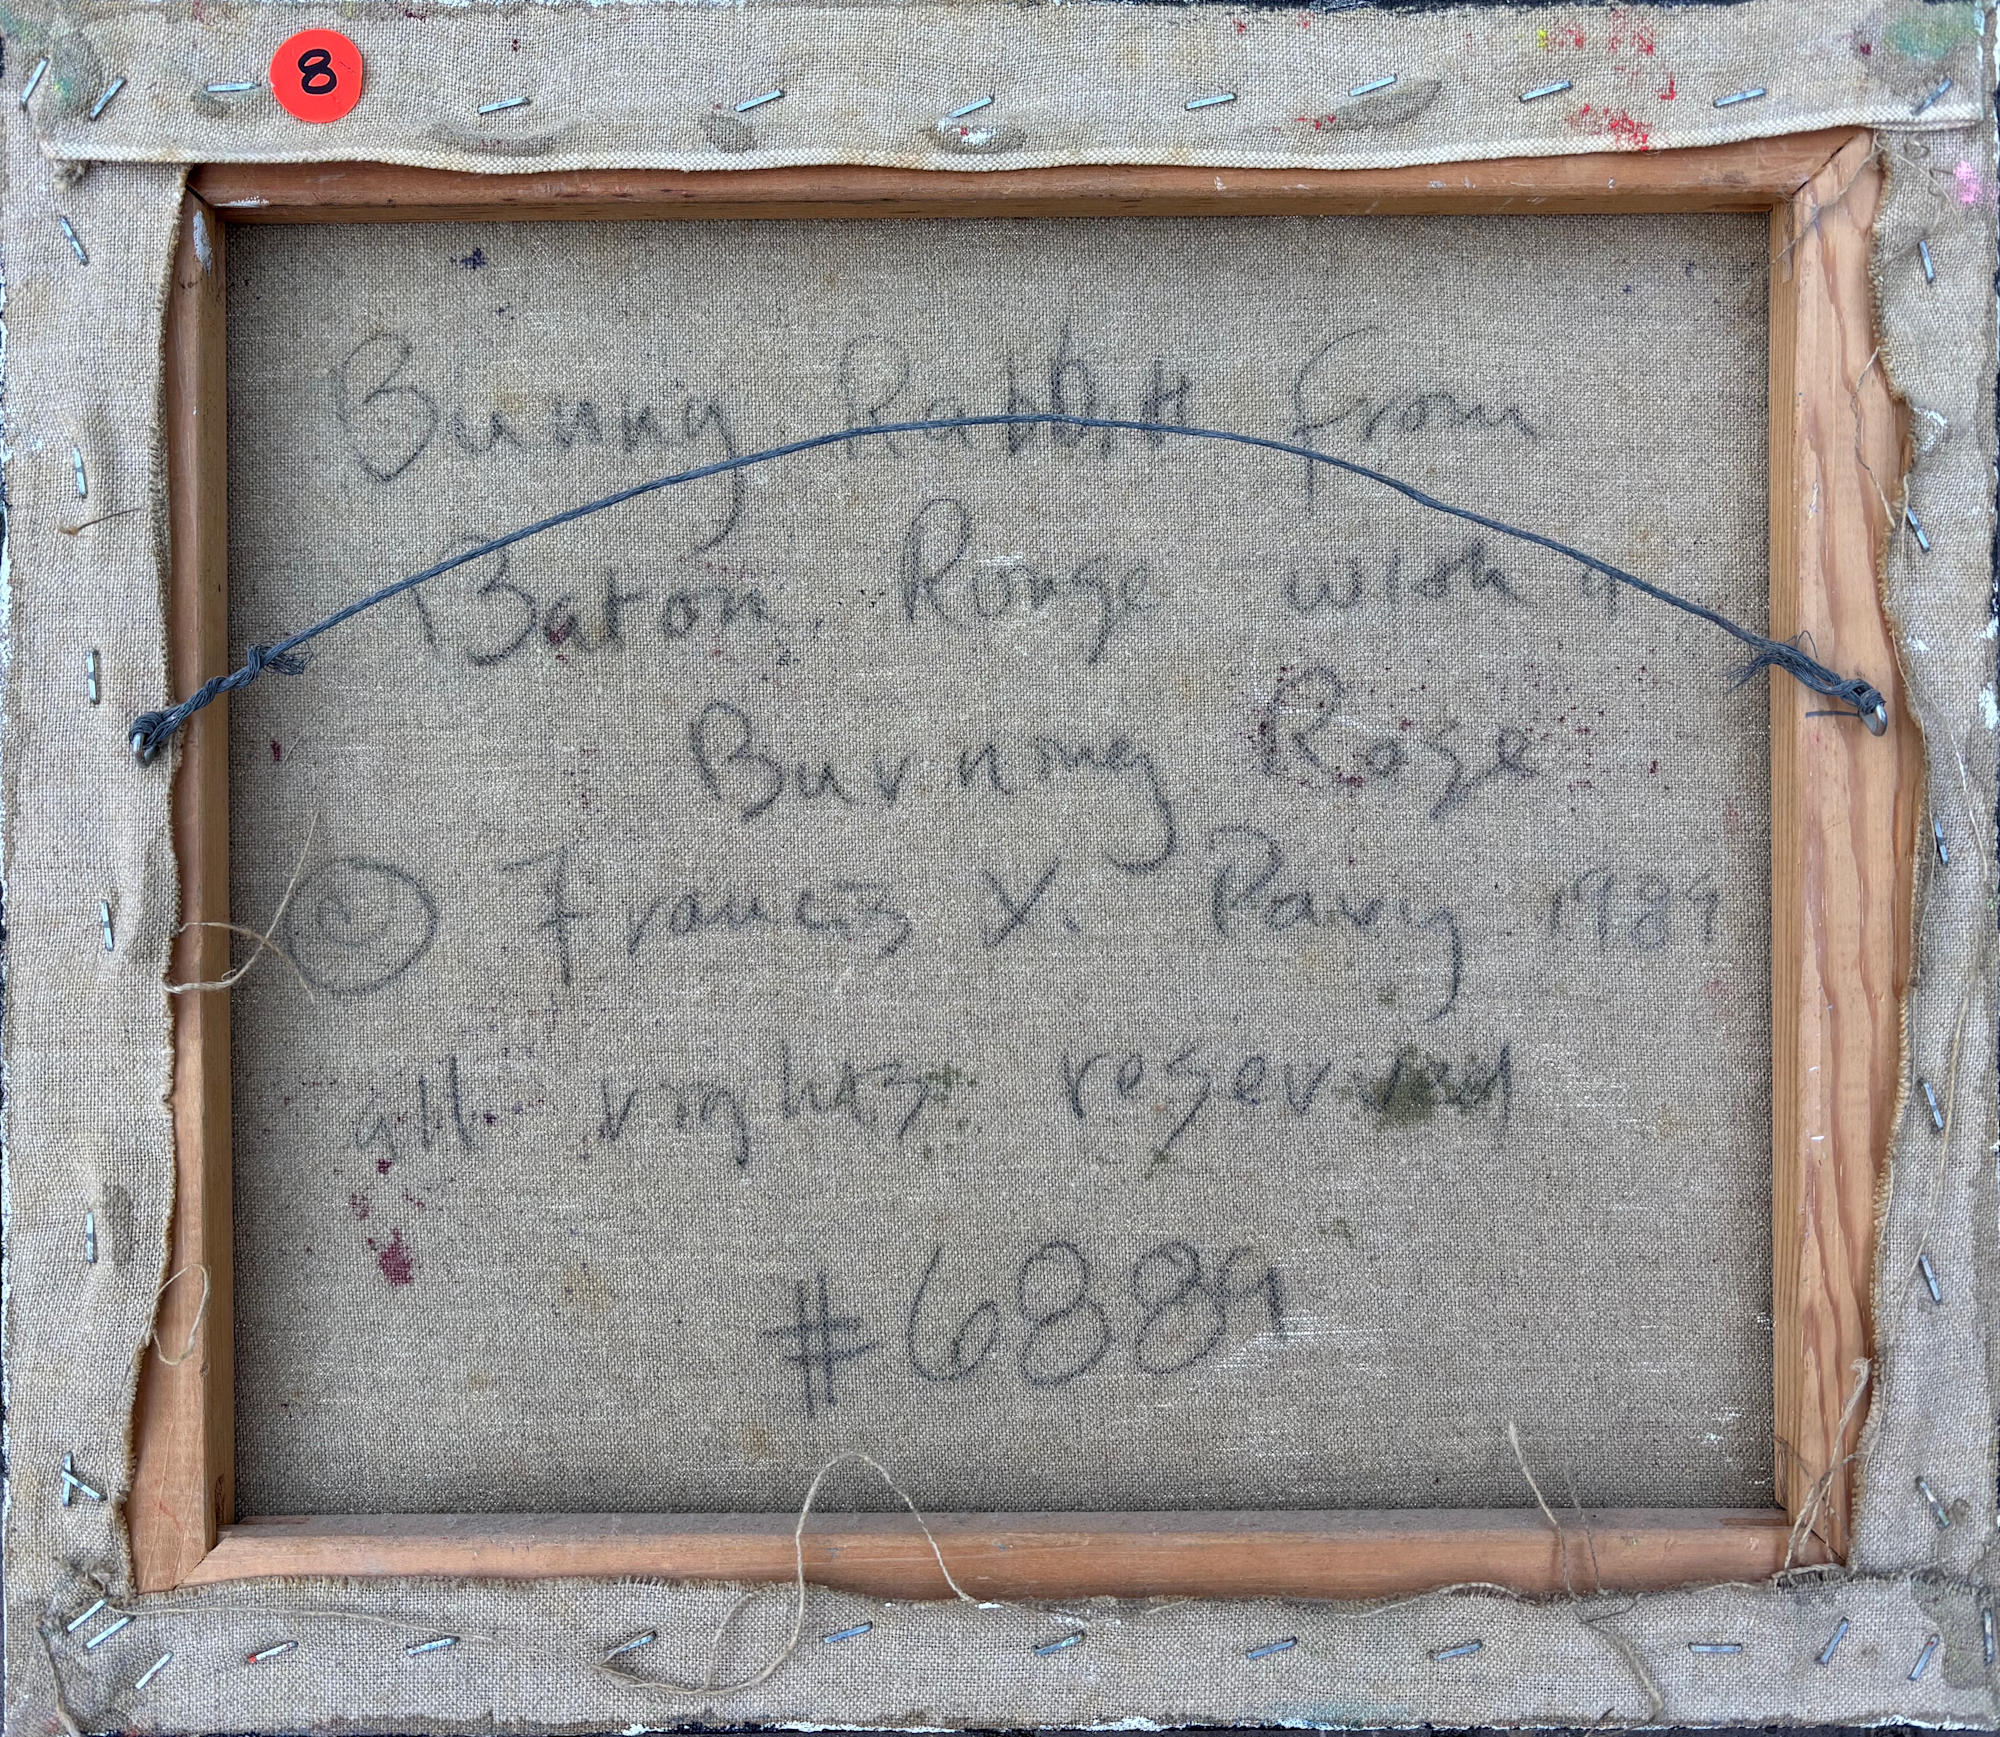 8
Bunny Rabbit from
Baton Rouge with a
Burning Rose
© Francis X. Pavy 1989
all rights reserved
#6889